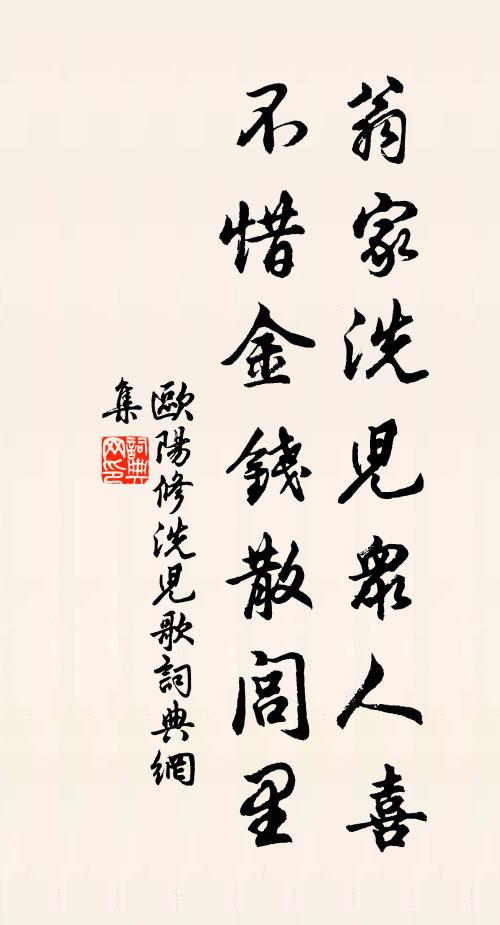 翁家洗児衆人喜
不惜金錢散閭里
歐陽修洗児歌詞典網
集
詞典
网印